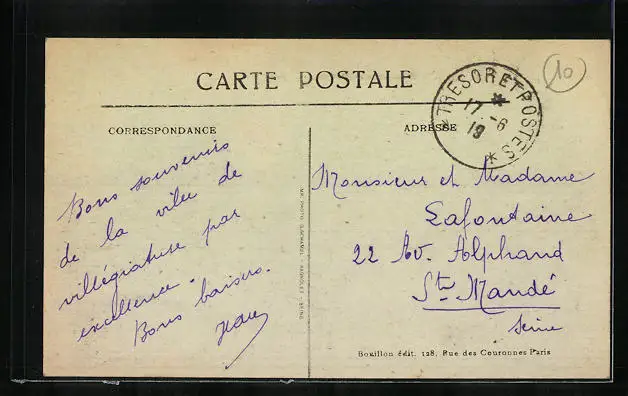 CARTE POSTALE
10
TRESOR ET POSTES
17 - 6
19
CORRESPONDANCE
ADRESSE
Bons souvenirs
de la ville de
villégiature par
excellence.
Bons baisers.
Monsieur et Madame
Lafontaine
22 Av. Alphand
St Mandé
Seine
Bouillon édit. 128, Rue des Couronnes Paris